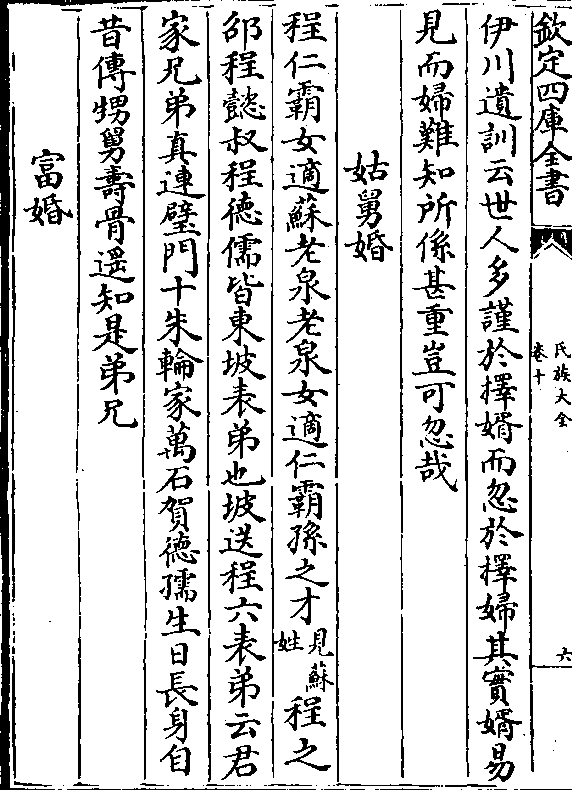 欽定四庫全書
氏族大全
卷十
六
伊川遺訓云世人多謹於擇婿而忽於擇婦其實婿易
見而婦難知所係甚重豈可忽哉
姑舅婚
程仁霸女適蘇老泉老泉女適仁霸孫之才見蘇姓程之
邵程懿叔程德儒皆東坡表弟也坡送程六表弟云君
家兄弟真連璧門十朱輪家萬石賀德孺生日長身自
昔傳甥舅壽骨遥知是弟兄
富婚